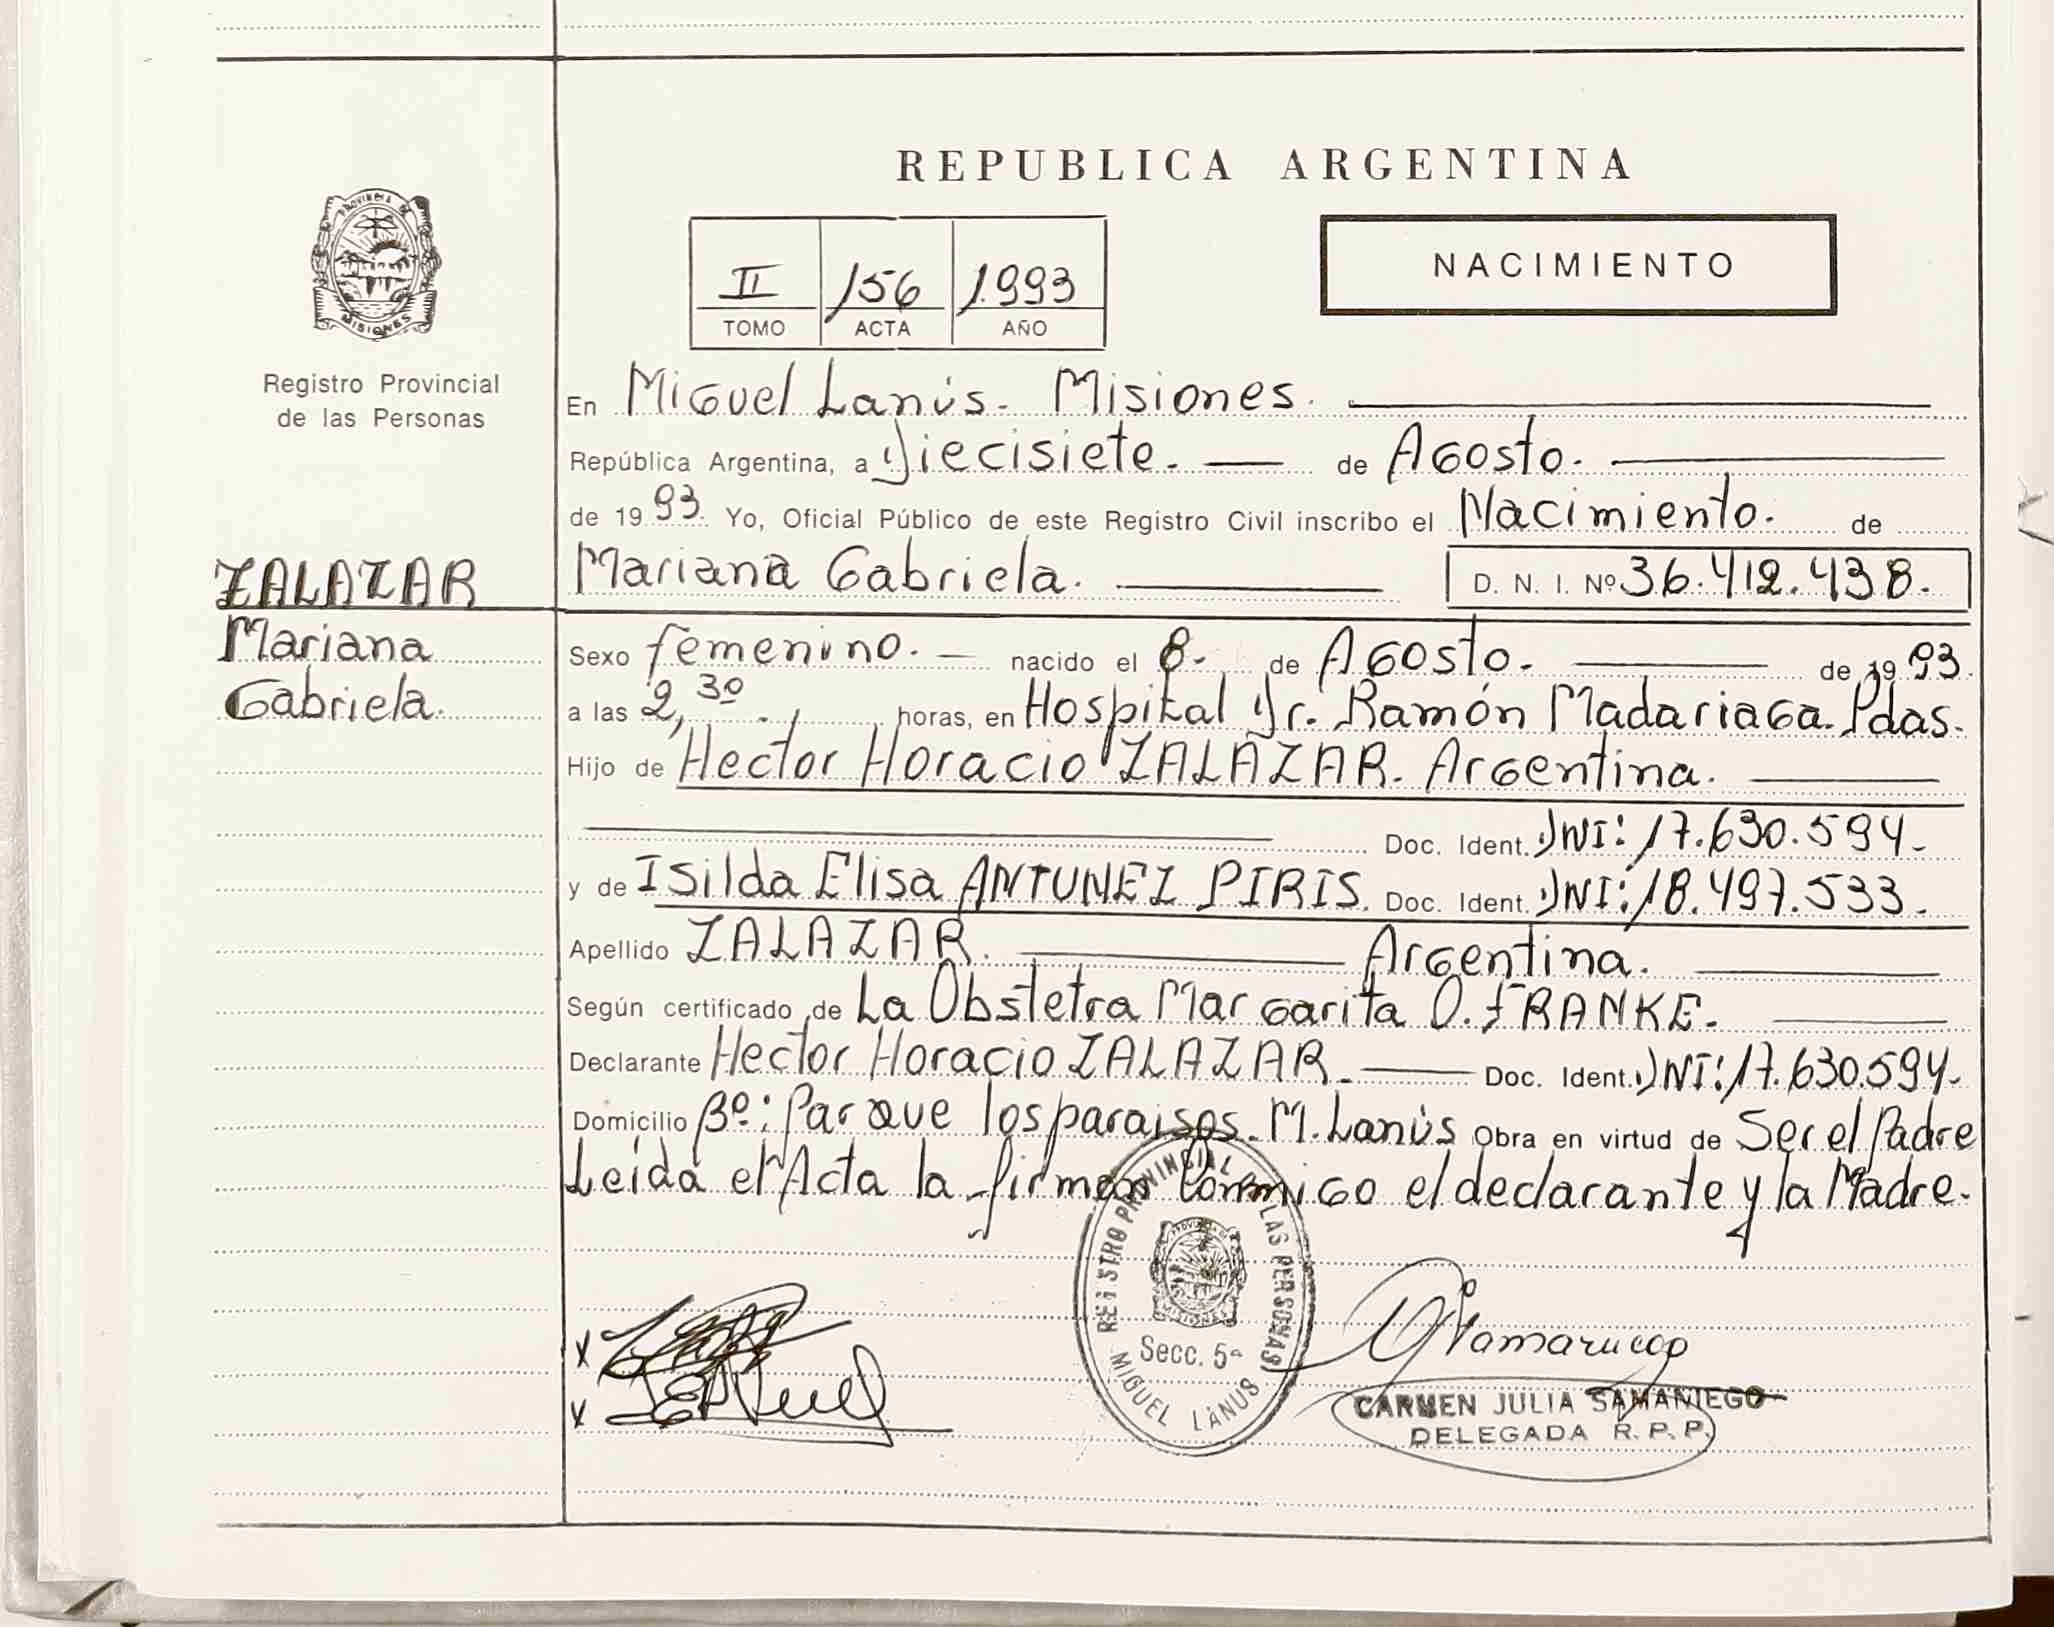 REPUBLICA ARGENTINA
PROVINCIA DE
MISIONES
Registro Provincial
de las Personas
II 156 1993
TOMO ACTA AÑO
NACIMIENTO
En Miguel Lanús. Misiones.
República Argentina, a Diecisiete. de Agosto.
de 1993. Yo, Oficial Público de este Registro Civil inscribo el Nacimiento. de
Mariana Gabriela. D. N. I. Nº 36.412.438.
ZALAZAR
Mariana
Gabriela.
Sexo femenino. nacido el 8. de Agosto. de 1993.
a las 2,30 horas, en Hospital Dr. Ramón Madariaga. Pdas.
Hijo de Hector Horacio ZALAZAR. Argentina.
Doc. Ident. DNI: 17.630.594.
y de Isilda Elisa ANTUNEZ PIRIS. Doc. Ident. DNI: 18.497.533.
Apellido ZALAZAR. Argentina.
Según certificado de La Obstetra Margarita O. FRANKE.
Declarante Hector Horacio ZALAZAR. Doc. Ident. DNI: 17.630.594.
Domicilio Bº: Parque los paraisos. M. Lanús Obra en virtud de Ser el Padre
Leida el Acta la firman conmigo el declarante y la Madre.
REGISTRO PROVINCIAL DE LAS PERSONAS
MISIONES
Secc. 5ª
MIGUEL LANUS
x
x
CARMEN JULIA SAMANIEGO
DELEGADA R. P. P.